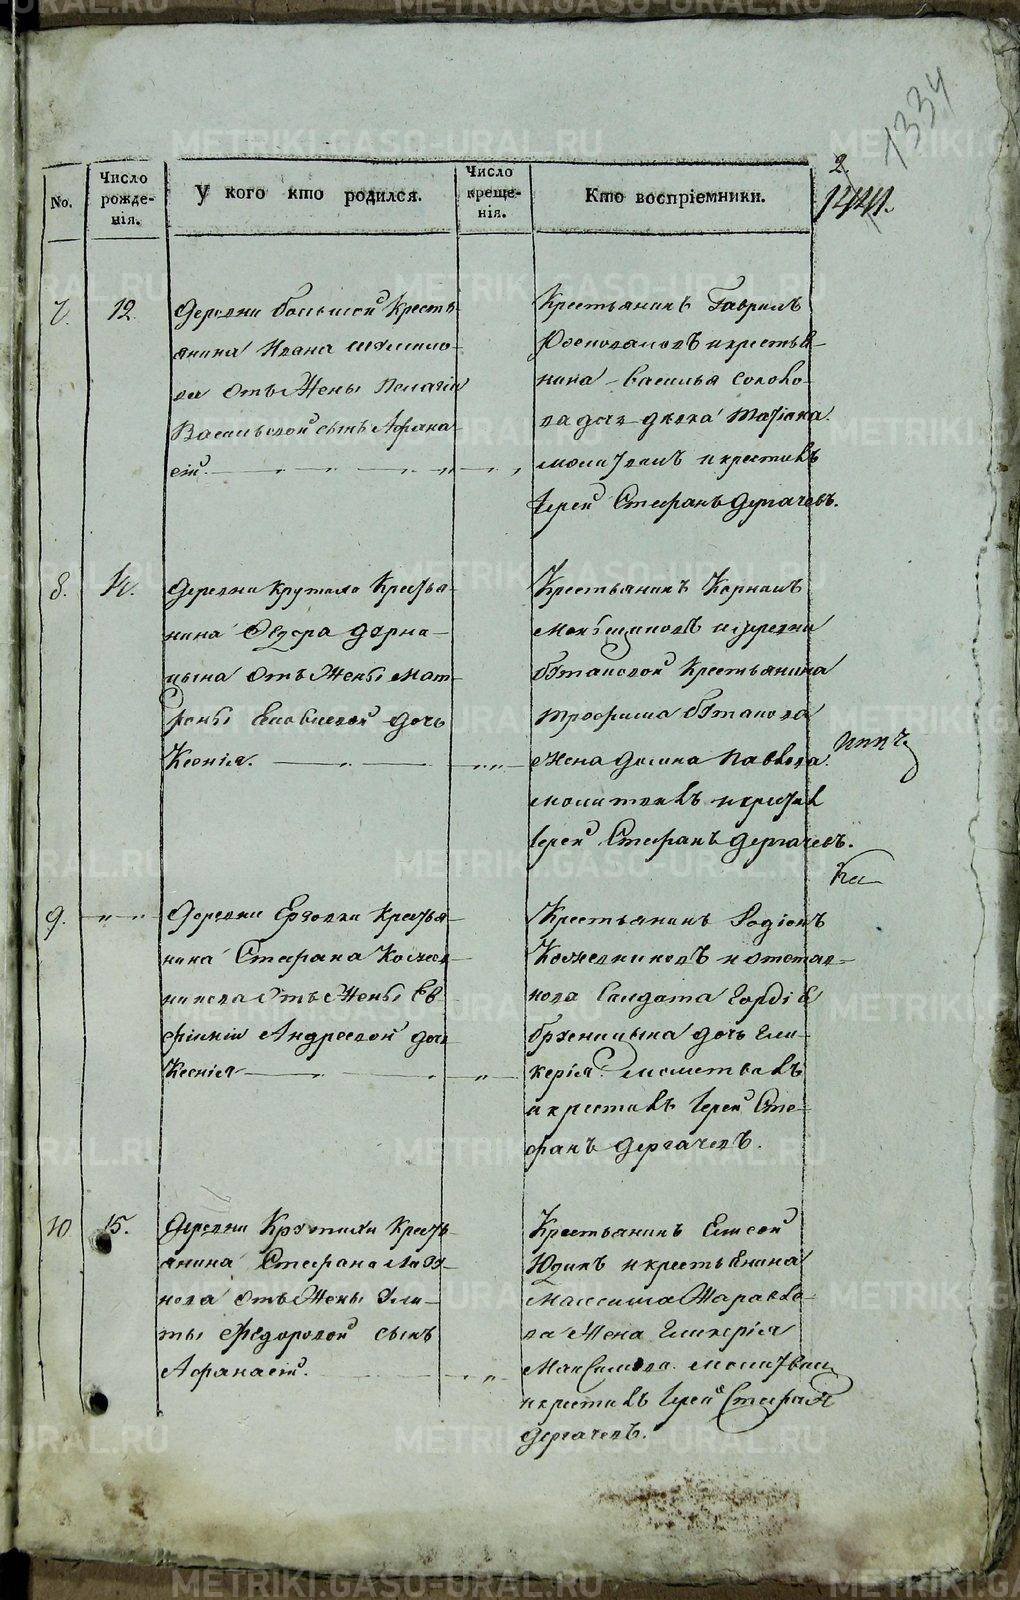 1334
2
1441.
No.
Число рожде-нія.
У кого кто родился.
Число креще-нія.
Кто воспріемники.
7.
12.
Деревни Большой Кресть
янина Ивана
ва отъ Жены Пелагіи
Васильевой сынъ Афана
сій
Крестьянинъ Гаврилъ
и крестья
нина Василья Соково
ва дочь девка Татіана.
молитвилъ и крестилъ
Іерей Стефанъ Дергачевъ.
8.
14.
Деревни Крутихи Крестья
нина Федора
цына отъ Жены Мат-
роны дочь
Ксенія.
Крестьянинъ Корнилъ
и деревни
Крестьянина
Трофима
Жена Домна Павлова.
молитвилъ и крестил
Іерей Стефанъ Дергачевъ.
9.
Деревни Крестья
нина Стефана Кожев
никова отъ Жены Ев
фиміи Андреевой дочь
Ксенія
Крестьянинъ Родіонъ
Кожевниковъ и отстав-
нова Салдата Гордія
дочь Гли-
керія. молитвилъ
и крестилъ Іерей Сте-
фанъ Дергачевъ.
10
15.
Деревни Крутихи Кресть
янина Стефана
нова отъ Жены Ули-
ты Федоровой сынъ
Афанасій.
Крестьянинъ Елисей
Юдинъ и крестьянина
Максима Жаравле-
ва Жена Гликерія
Максимова. молитвил
и крестилъ Іерей Стефанъ
Дергачевъ.
METRIKI.GASO-URAL.RU